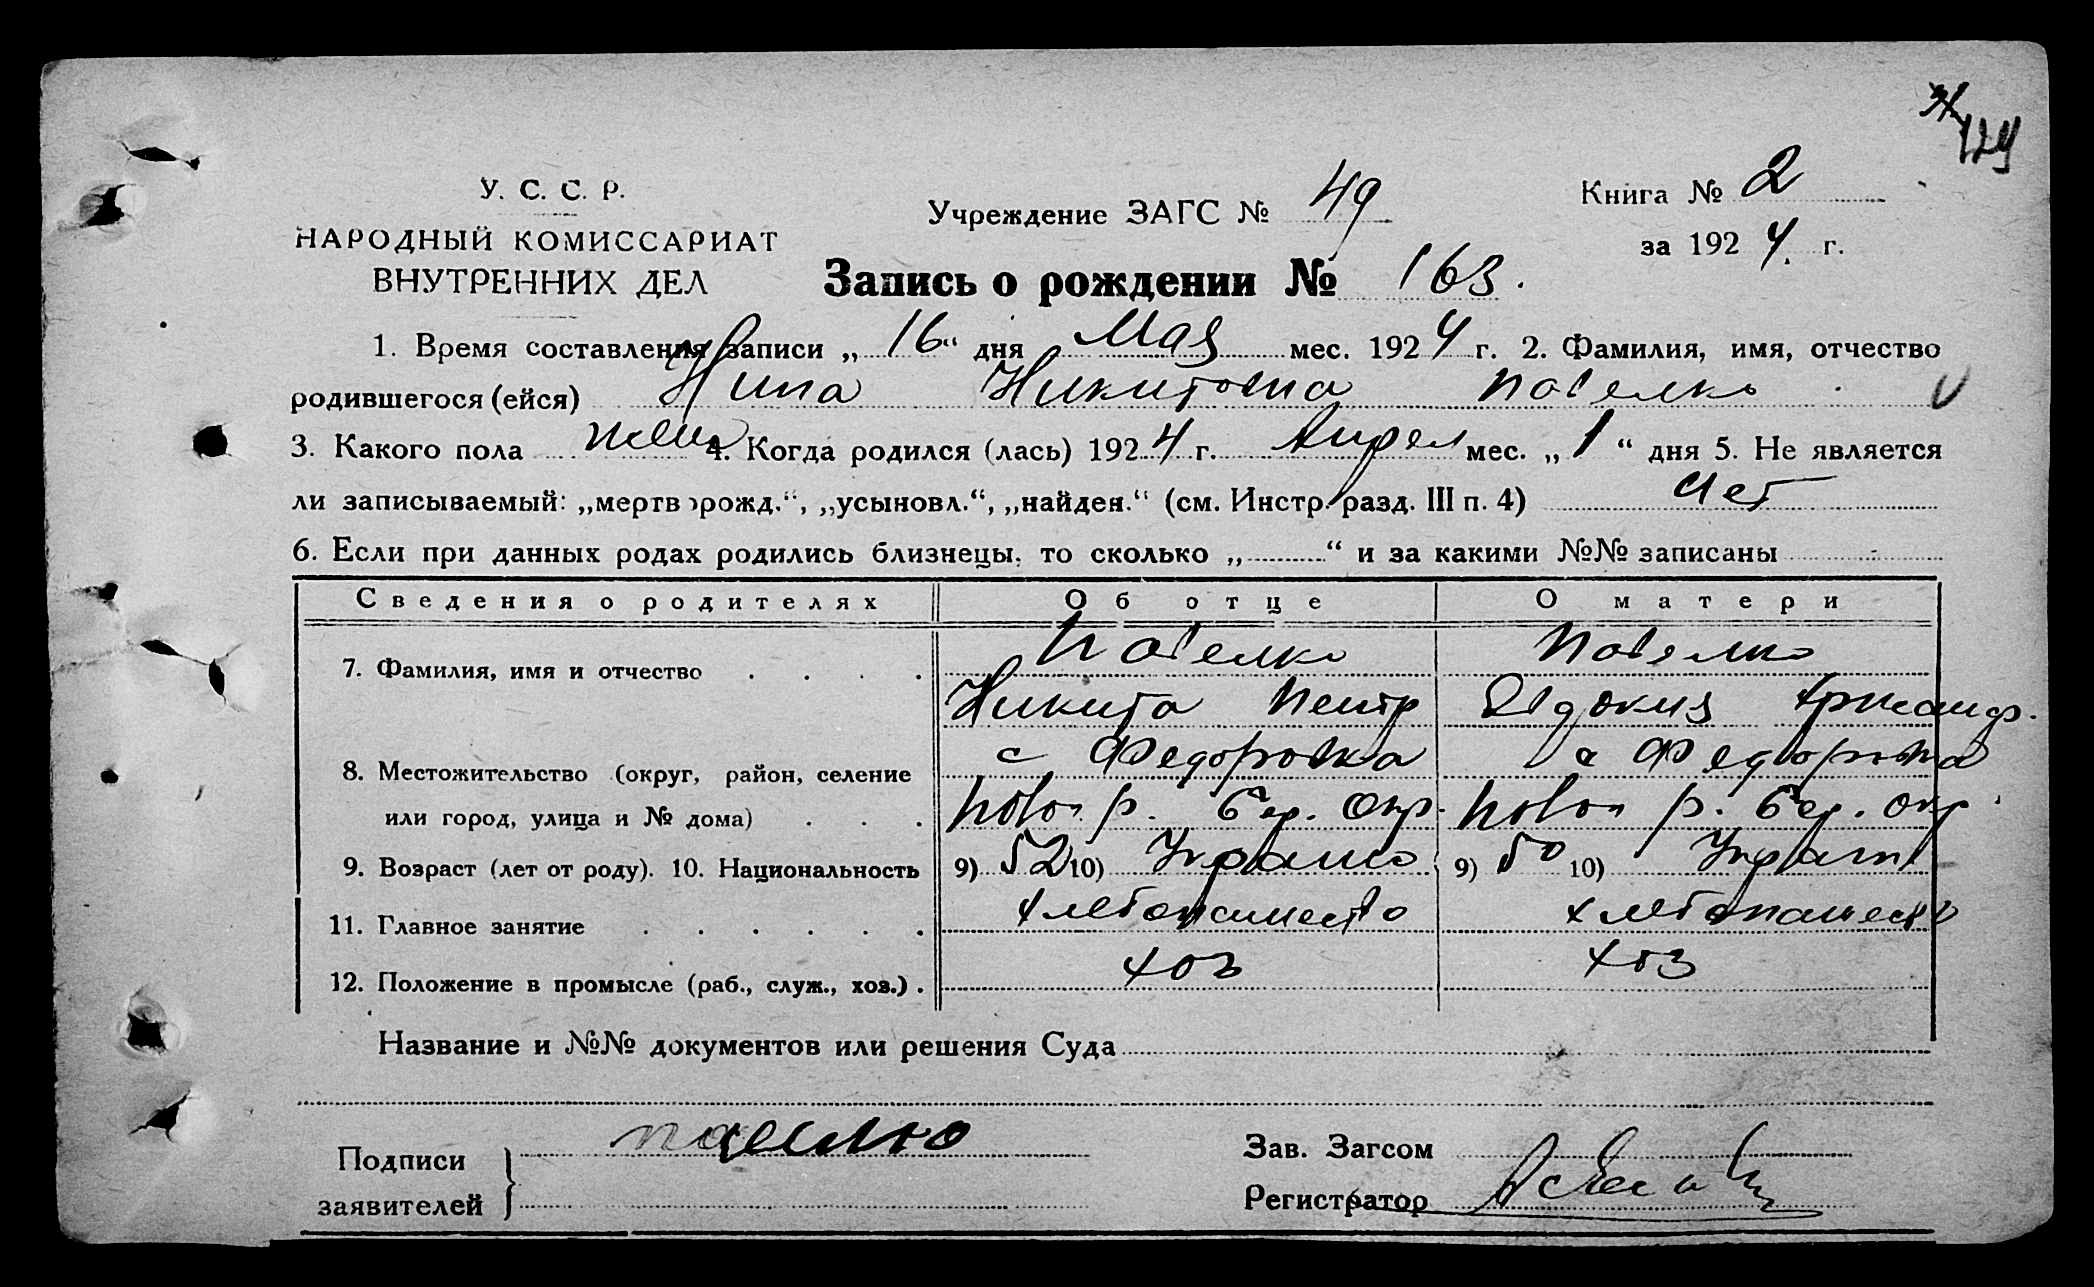 124
У. С. С. Р.
НАРОДНЫЙ КОМИССАРИАТ
ВНУТРЕННИХ ДЕЛ
Учреждение ЗАГС № 49
Книга № 2
за 1924 г.
Запись о рождении № 163.
1. Время составления записи „16“ дня Мая мес. 1924 г. 2. Фамилия, имя, отчество
родившегося (ейся) Нина Никитовна Павелко
3. Какого пола жен 4. Когда родился (лась) 1924 г. Апрел мес. „1“ дня 5. Не является
ли записываемый: „мертворожд.“, „усыновл.“, „найден.“ (см. Инстр. разд. III п. 4) Нет
6. Если при данных родах родились близнецы, то сколько „ “ и за какими №№ записаны
Сведения о родителях Об отце О матери
7. Фамилия, имя и отчество Павелко Павелко
Никита Петр Евдокия
8. Местожительство (округ, район, селение с Федоровка с Федоровка
или город, улица и № дома) Новон р. Бер. Окр. Новон р. Бер. Окр.
9. Возраст (лет от роду). 10. Национальность 9) 52 10) Украин 9) 50 10) Украин
11. Главное занятие хлебопашество хлебопашество
12. Положение в промысле (раб., служ., хоз.) хоз хоз
Название и №№ документов или решения Суда
Подписи
заявителей
Зав. Загсом
Регистратор